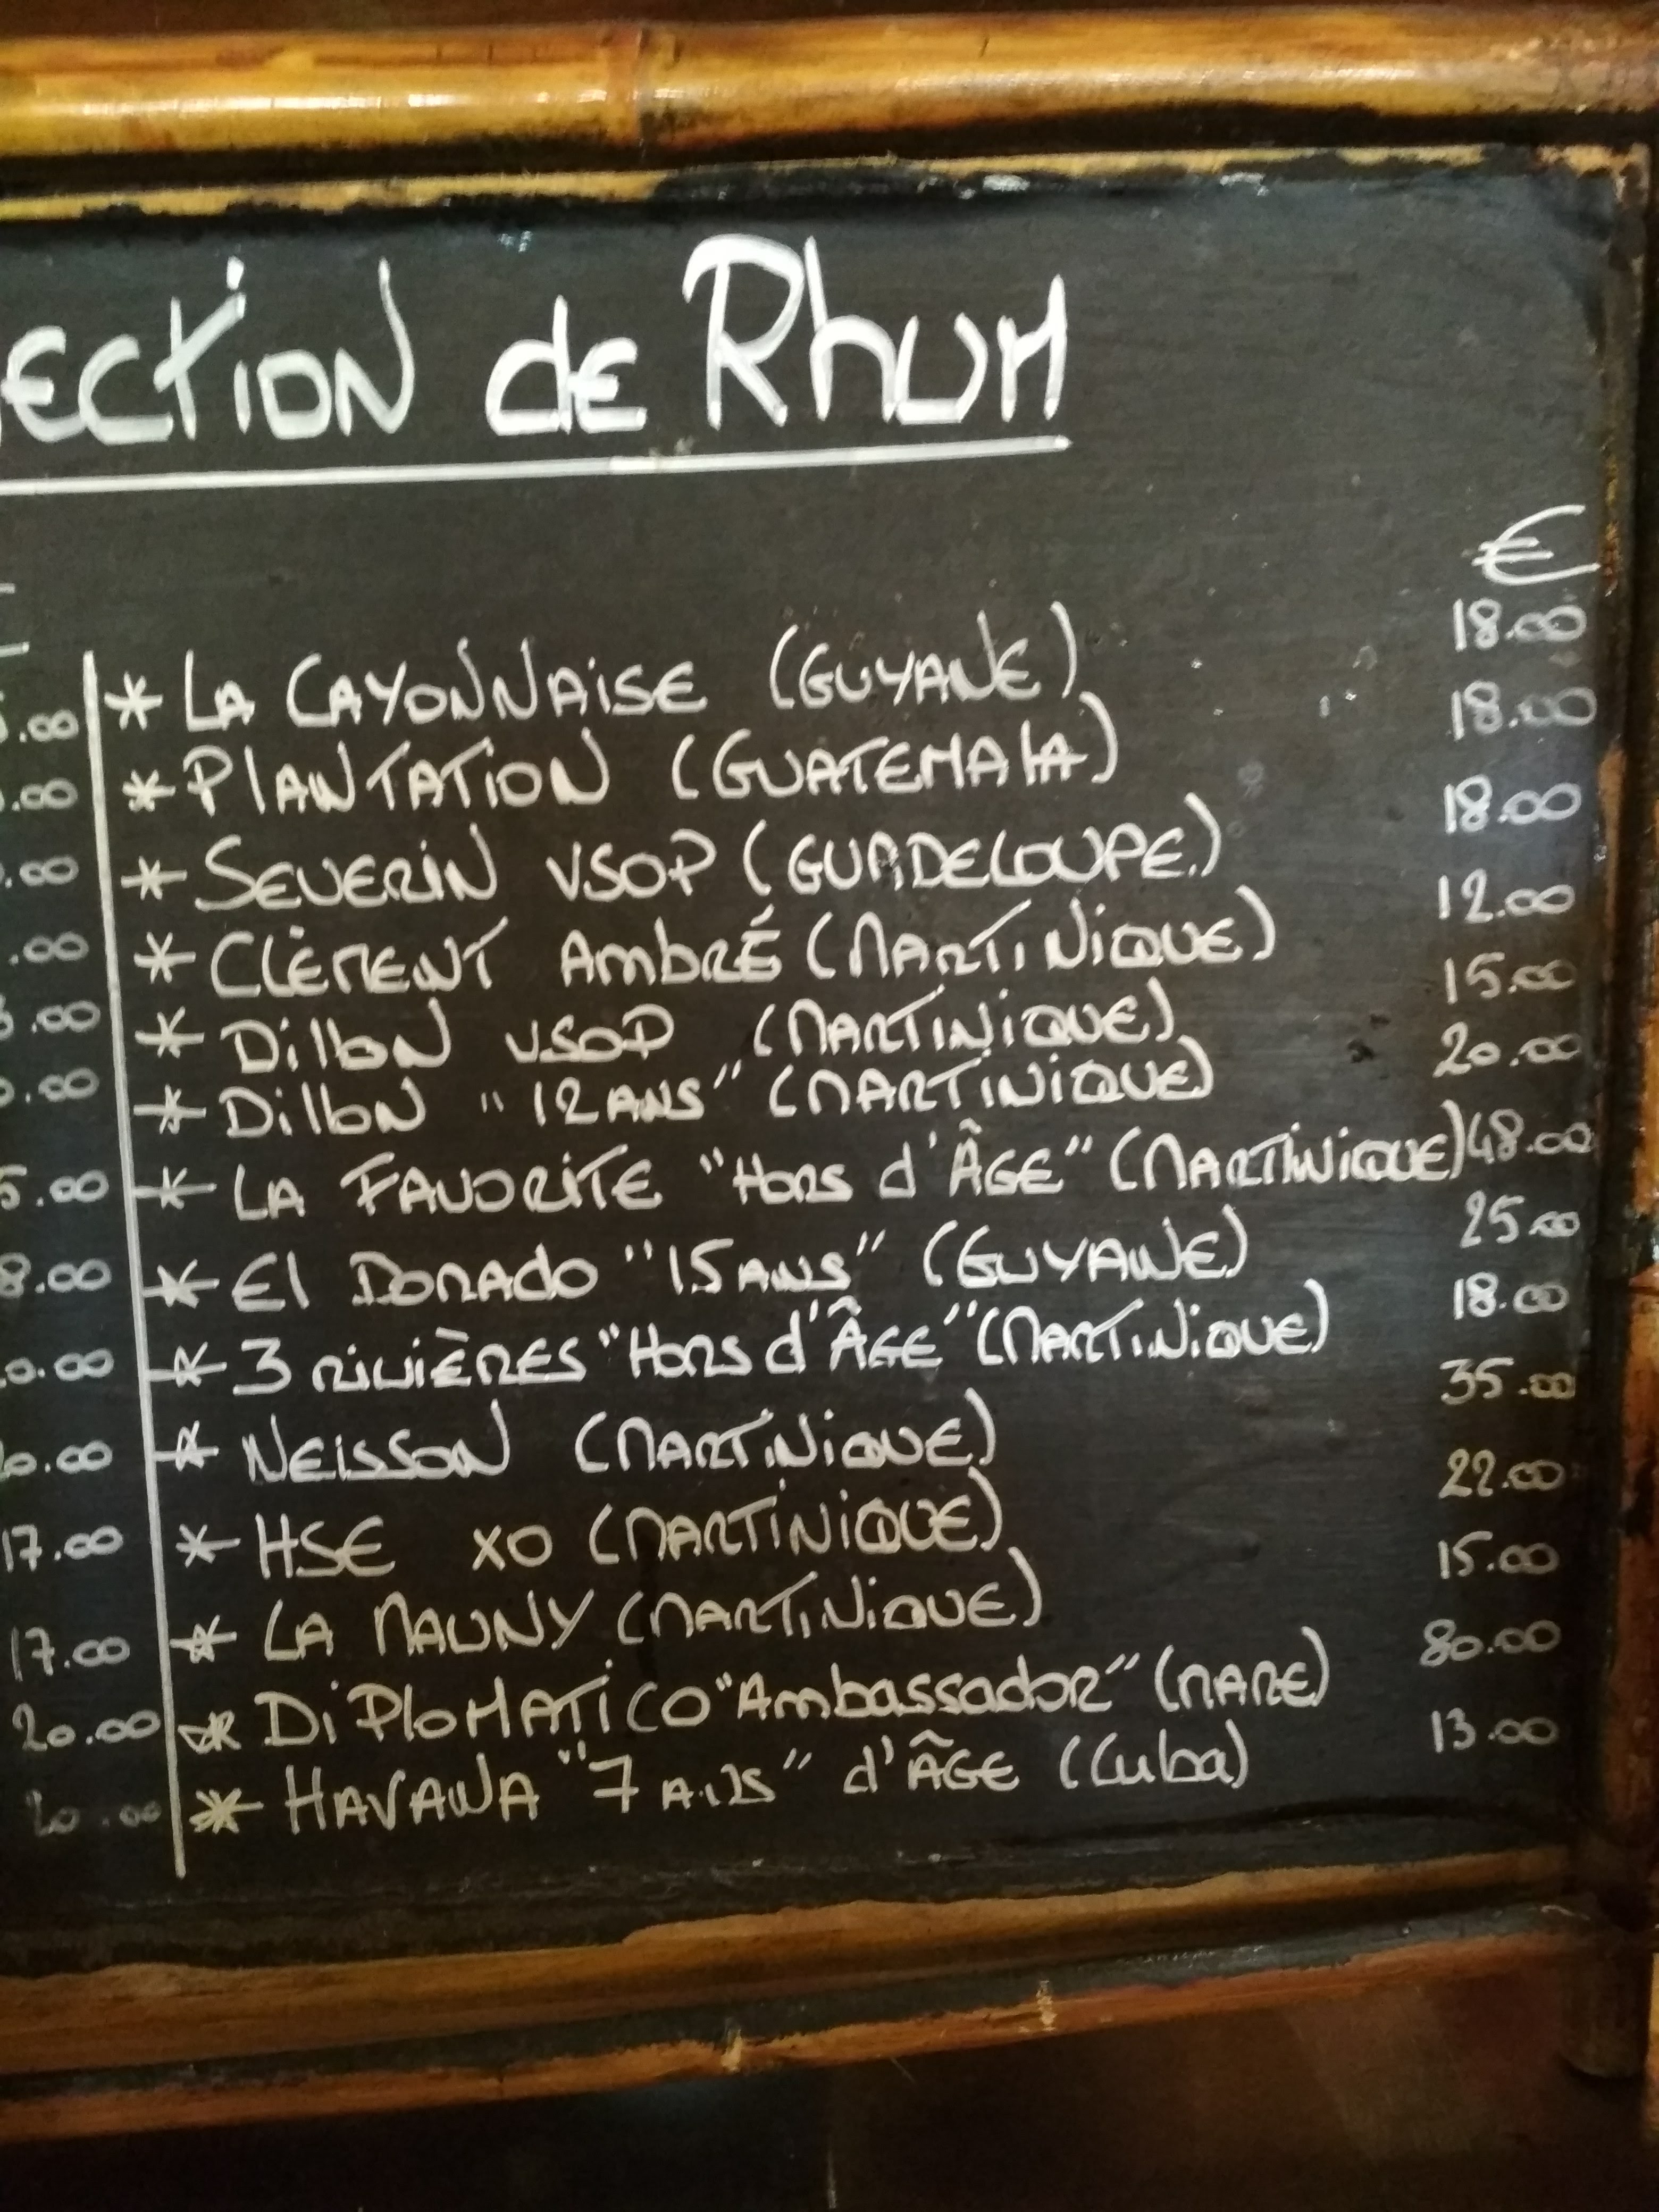 ECTION de RhuM
€
.00 * LA CAYONNAISE (GUYANE) 18.00
.00 * PlANTATION (GUATEMAlA) 18.00
.00 * SEVERIN VSOP (GUADELOUPE.) 18.00
.00 * ClÈMENT AmbRÉ (MARTINiQUE) 12.00
.00 * DillON VSOP (MARTINiQUE) 15.00
.00 * DillON "12 ANS" (MARTINiQUE) 20.00
5.00 * LA FAVORITE "HORS d'ÂGE" (MARTINiQUE) 48.00
8.00 * El DORADO "15 ANS" (GUYANE) 25.00
0.00 * 3 RiViÈRES "HORS d'ÂGE" (MARTINiQUE) 18.00
0.00 * NEiSSON (MARTINiQUE) 35.00
17.00 * HSE XO (MARTINiQUE) 22.00
17.00 * LA MAUNY (MARTINiQUE) 15.00
20.00 * DiPloMATiCO "Ambassador" (RARE) 80.00
20.00 * HAVANA "7 ANS" d'ÂGE (Cuba) 13.00